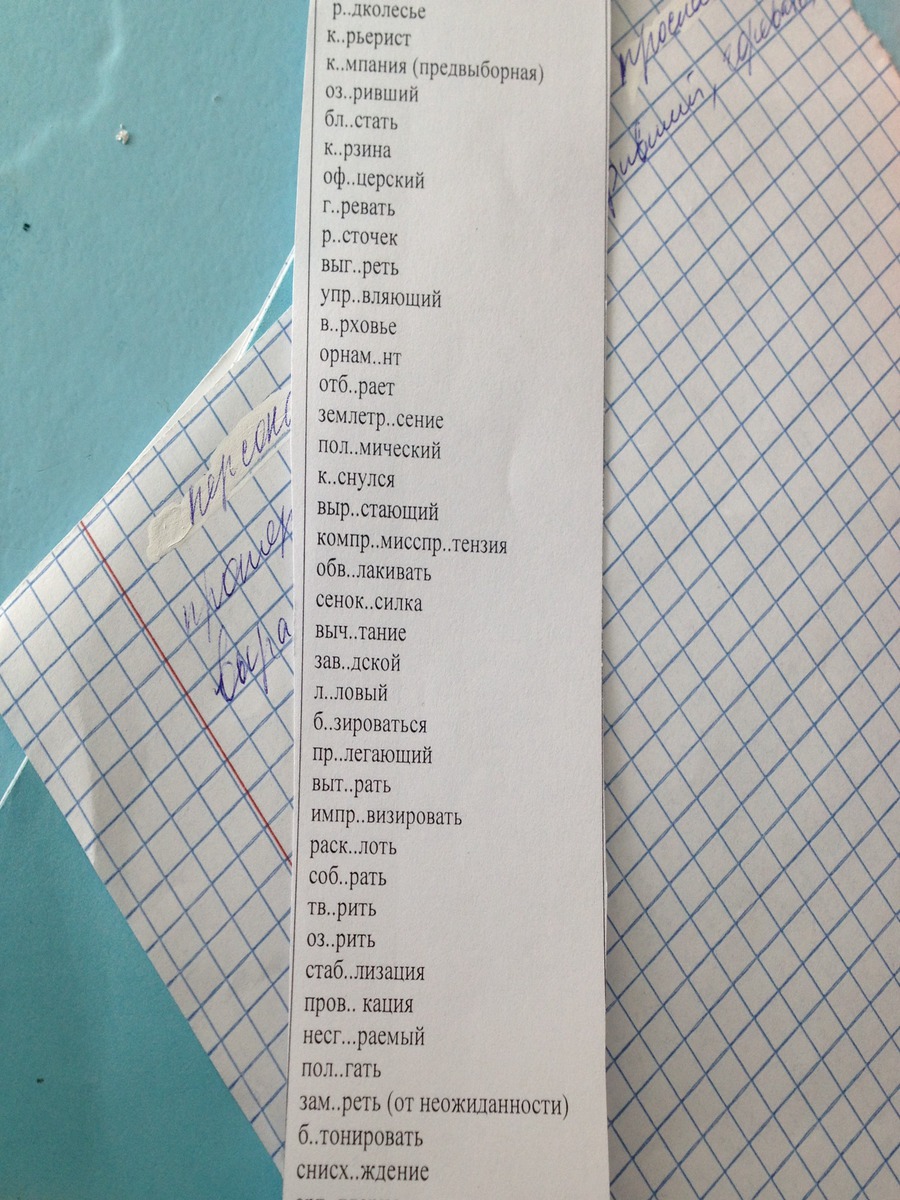 р..дколесье
к..рьерист
к..мпания (предвыборная)
оз..ривший
бл..стать
к..рзина
оф..церский
г..ревать
р..сточек
выг..реть
упр..вляющий
в..рховье
орнам..нт
отб..рает
землетр..сение
пол..мический
к..снулся
выр..стающий
компр..мисспр..тензия
обв..лакивать
сенок..силка
выч..тание
зав..дской
л..ловый
б..зироваться
пр..легающий
выт..рать
импр..визировать
раск..лоть
соб..рать
тв..рить
оз..рить
стаб..лизация
пров.. кация
несг...раемый
пол..гать
зам..реть (от неожиданности)
б..тонировать
снисх..ждение
персон
выра